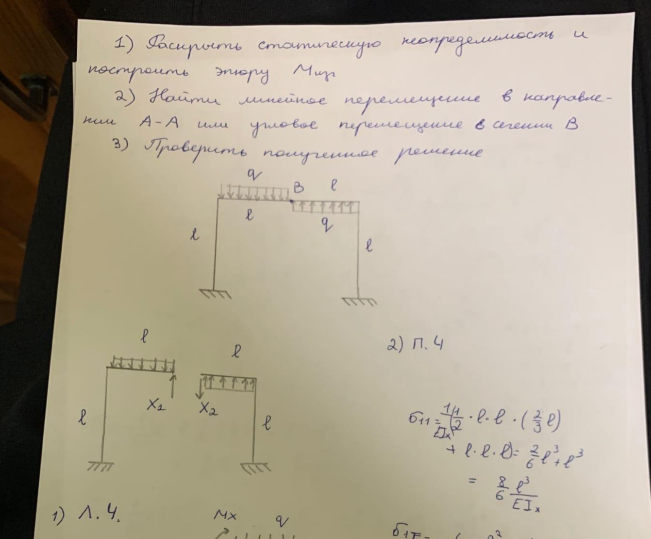 1) Раскрыть статическую неопределимость и
построить эпюру Mизг
2) Найти линейное перемещение в направле-
нии А-А или угловое перемещение в сечении В
3) Проверить полученное решение
q
B l
l
q
l
l
l
l
2) П.4
X1
X2
l
l
б11 = 1/EIx (1/2 · l · l · (2/3 l)
+ l · l · l) = 2/6 l³ + l³
= 8/6 l³/EIx
1) Л.4.
Mx
q